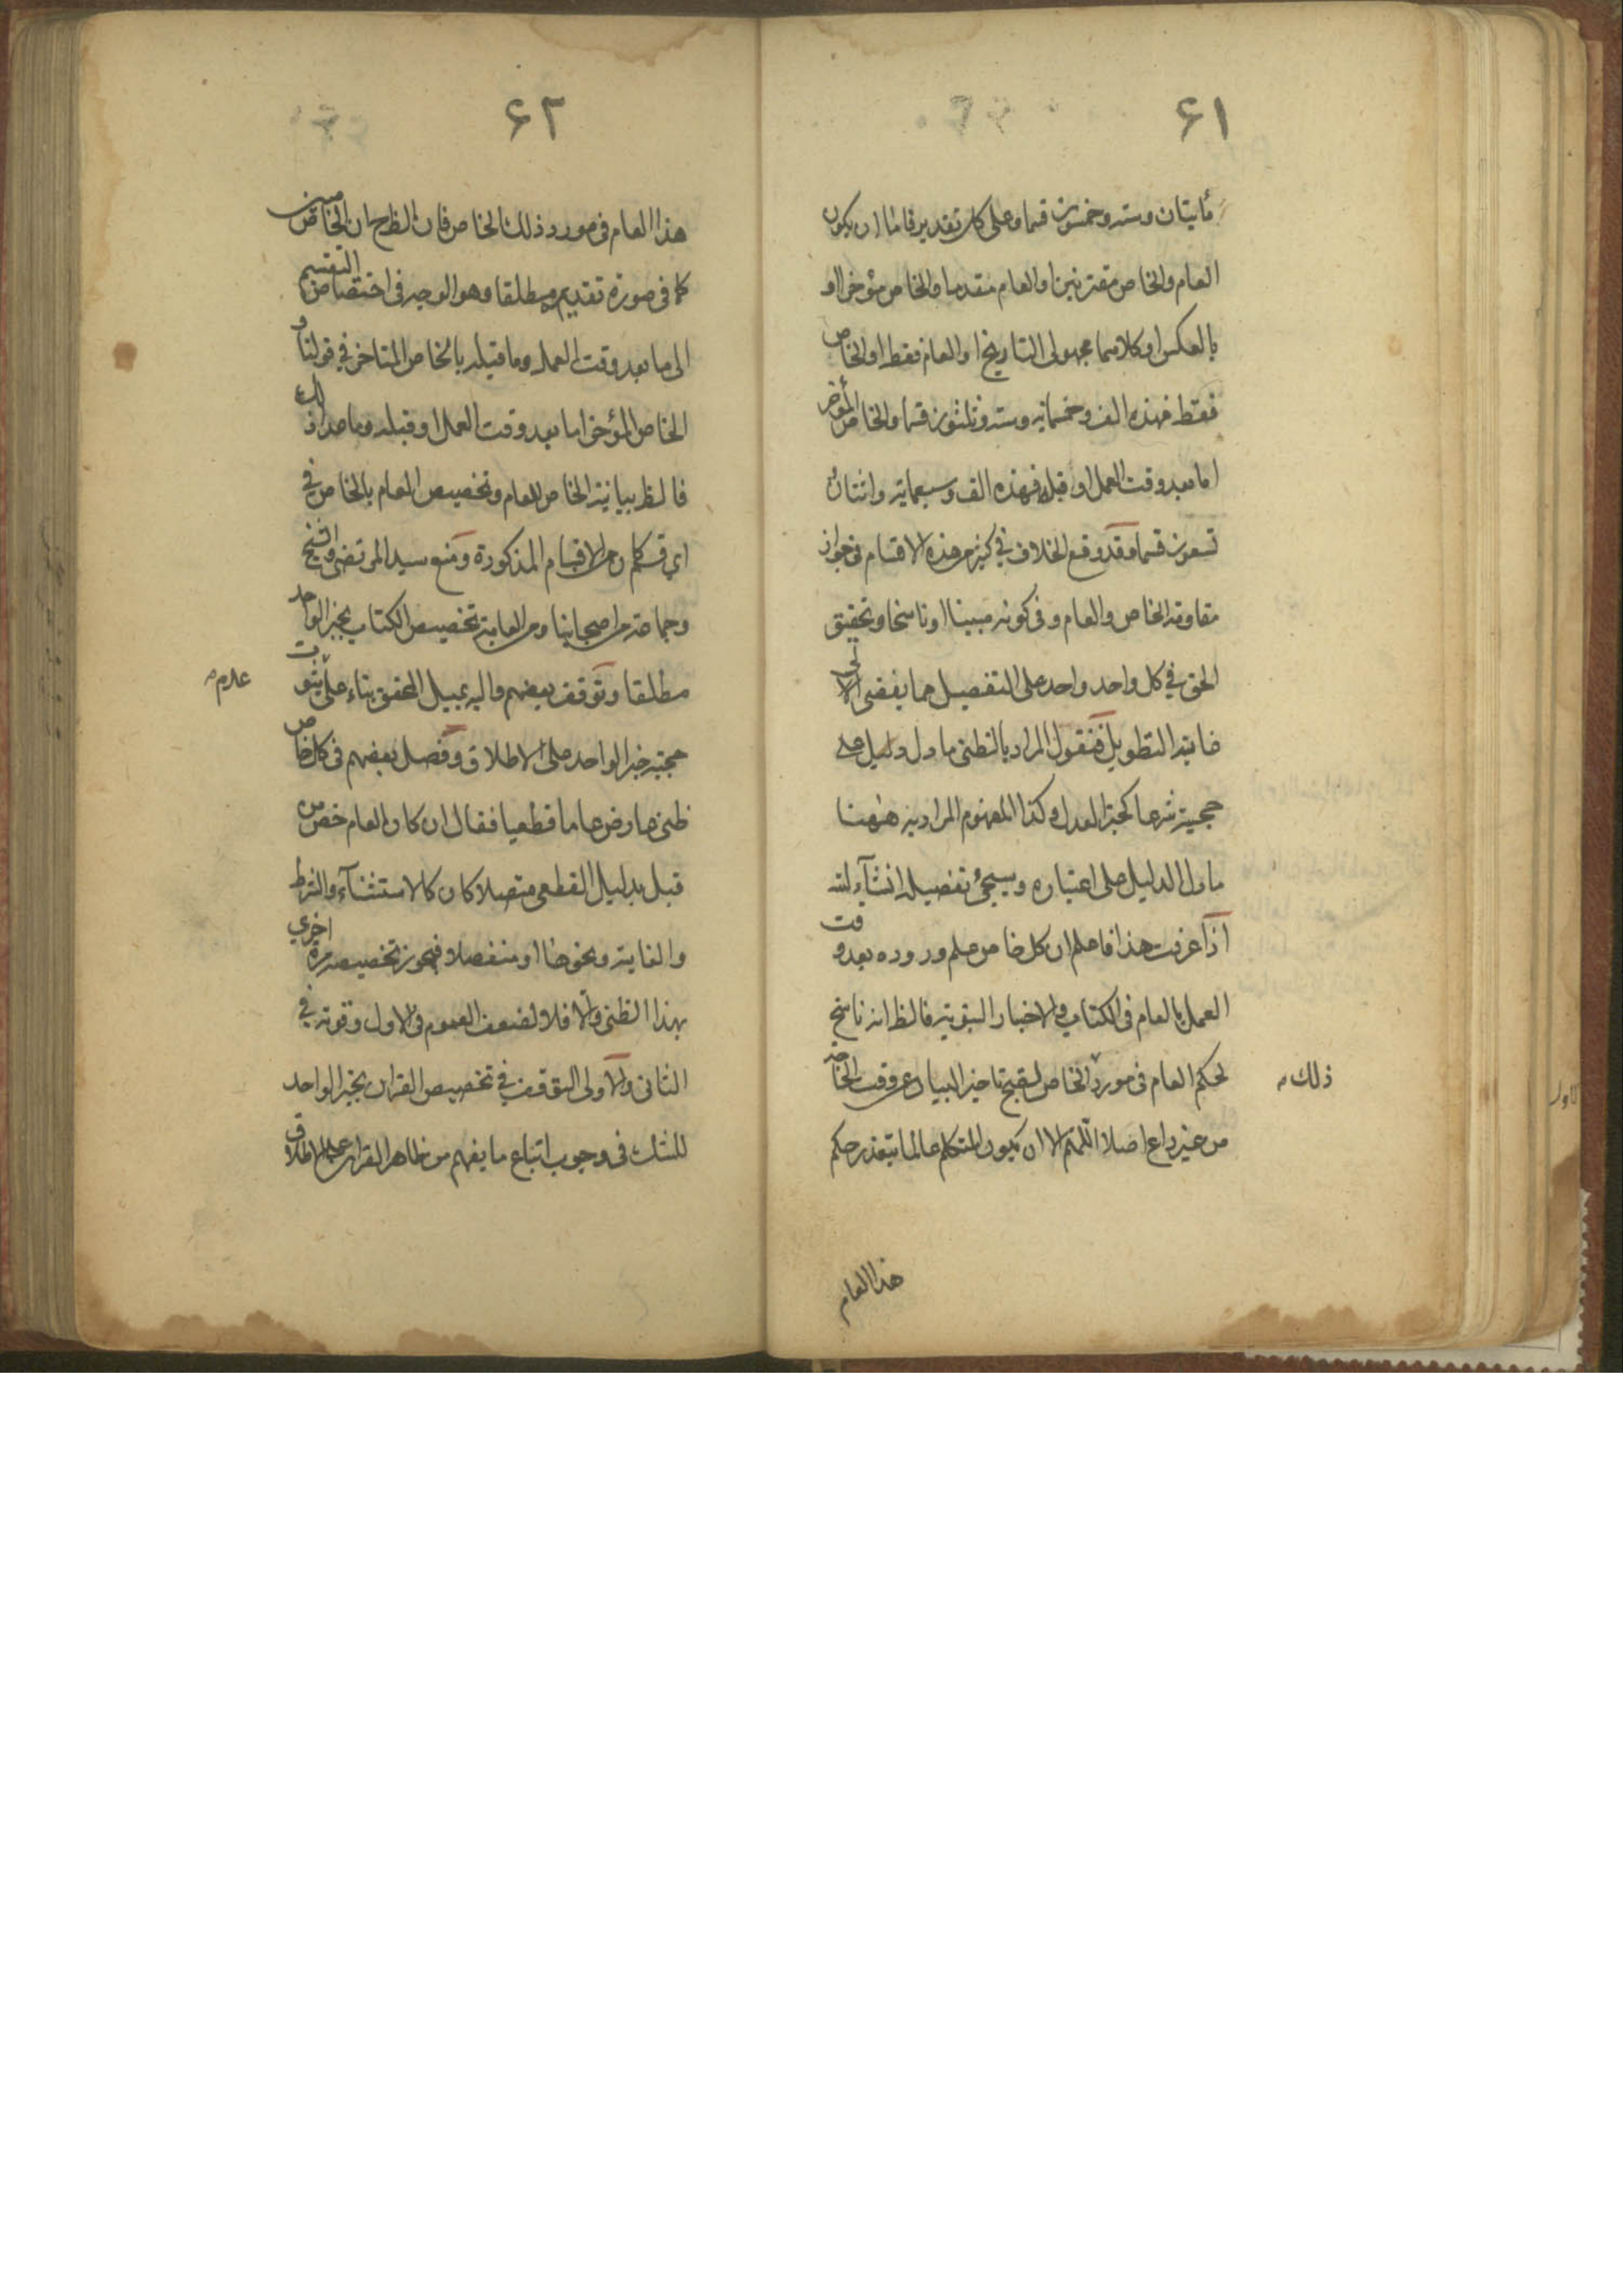 ٦١
مأيتان وستة وخمسون قسما وعلى كل تقدير فاما ان يكون
العام والخاص مقترنين او العام متقدما والخاص مؤخرا او
بالعكس او كلاهما مجهولى التاريخ او العام فقط او الخاص
فقط فهذه الف وخمسمائة وستة وثلثون قسما والخاص المؤخر
اما بعد وقت العمل او قبله فهذه الف وسبعماية واثنتان
تسعون قسما وقد وقع الخلاف في كثير من هذه الاقسام في جواز
مقاومة الخاص والعام وفى كونه مبينا او ناسخا وتحقيق
الحق في كل واحد واحد على التفصيل مما يفضى الى
غاية التطويل فنقول المراد بالظنى ما دل دليل على
حجيته شرعا كخبر العدل وكذا المفهوم المراد به ههنا
ما دل الدليل على اعتباره وسيجئ تفصيله انشآء الله
اذا عرفت هذا فاعلم ان كل خاص علم وروده بعد وقت
العمل بالعام فى الكتاب والاخبار النبوية فالظ انه ناسخ
لحكم العام فى مورد الخاص لقبح تاخير البيان عن وقت الحاجة
ذلك
من غير داع اصلا اللهم الا ان يكون المتكلم عالما بتعذر حكم
هذا العام
٦٢
هذا العام فى مورد ذلك الخاص فان الظ ح ان الخاص مبين
كما فى صورة تقديمه مطلقا وهو الوجه فى اختصاص التقسيم
الى ما بعد وقت العمل وما قبله بالخاص المتاخر في قولنا و
الخاص المؤخر اما بعد وقت العمل او قبله وما عدا ذلك
فالظ بيانية الخاص للعام وتخصيص العام بالخاص في
اي قسم كان من الاقسام المذكورة ومنع سيد المرتضى والشيخ
وجماعة من اصحابنا ومن العامة تخصيص الكتاب بخبر الواحد
مطلقا وتوقف بعضهم واليه يميل المحقق بناء على ثبوت
عدم
حجية خبر الواحد على الاطلاق وفصل بعضهم فى كل خاص
ظنى عارض عاما قطعيا فقال ان كان العام خص من
قبل بدليل القطعى متصلا كان كالاستثنآء والشرط
والغاية ونحوها او منفصلا فيجوز تخصيصه مرة اخري
بهذا الظنى والا فلا لضعف العموم فى الاول وقوته في
الثانى والاولى التوقف في تخصيص القران بخبر الواحد
للشك فى وجوب اتباع ما يفهم من ظاهر القران على الاطلاق